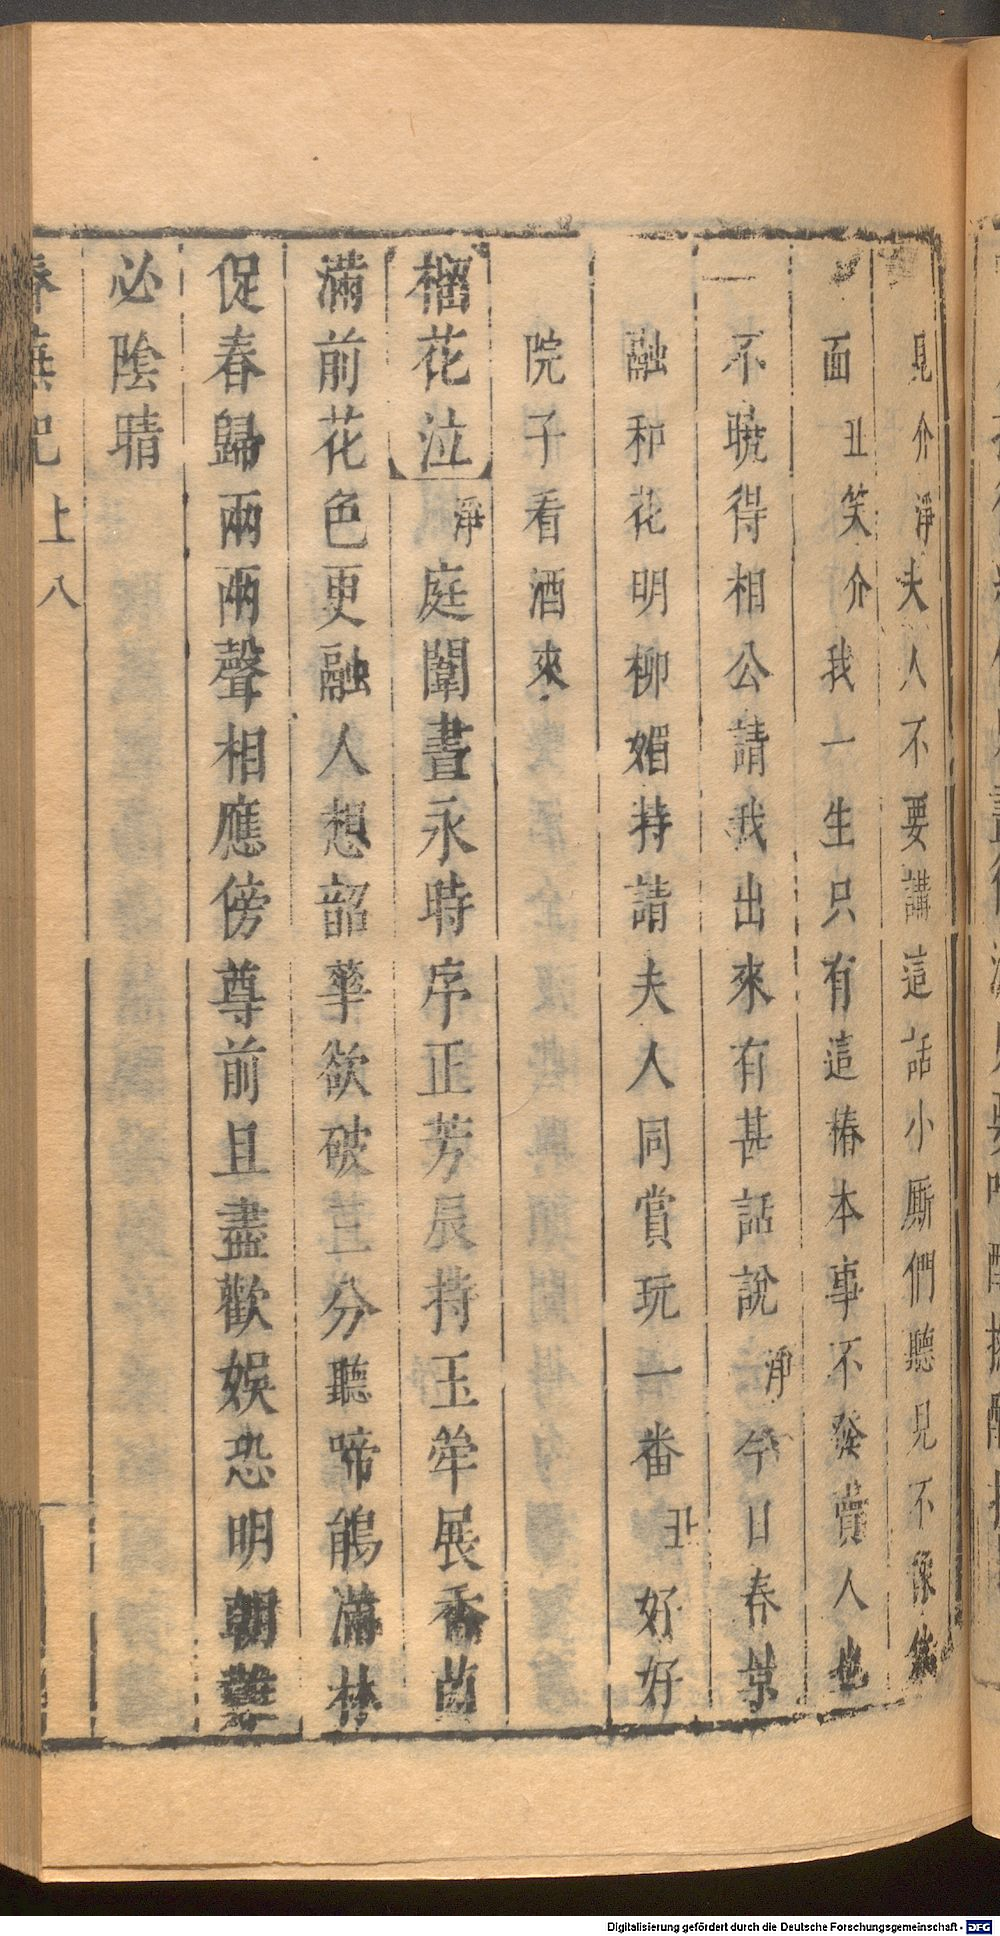 見介淨夫人不要講這話小厮們聽見不像體
面丑笑介我一生只有這樁本事不發賣人也
不曉得相公請我出來有甚話說淨今日春景
融和花明柳媚特請夫人同賞玩一番丑好好
院子看酒來
榴花泣淨庭闈晝永時序正芳辰持玉斝展香茵
滿前花色更融人想韶華欲破荳分聽啼鵑滿林
促春歸兩兩聲相應傍尊前且盡歡娛恐明朝難
必陰晴
春蕪記 上 八
Digitalisierung gefördert durch die Deutsche Forschungsgemeinschaft - DFG